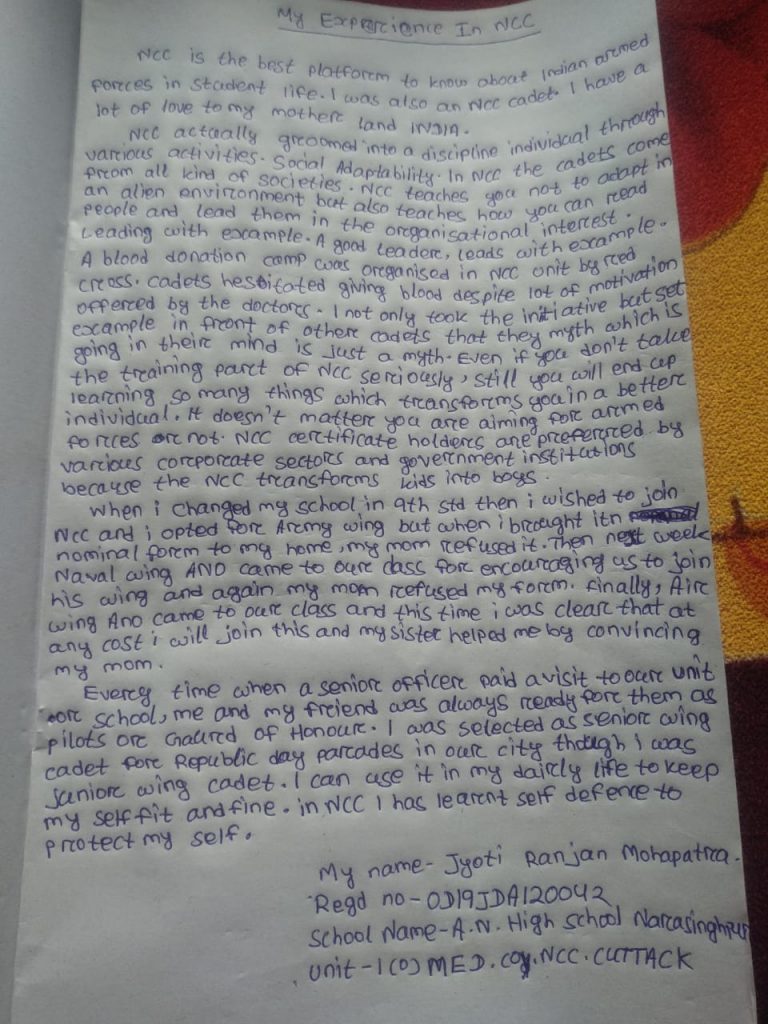 My Exparcience In NCC
NCC is the best platform to know about Indian armed
forces in student life. I was also an NCC cadet. I have a
lot of love to my mother land INDIA.
NCC actually groomed into a discipline individual through
various activities. Social Adaptability. In NCC the cadets come
from all kind of societies. NCC teaches you not to adapt in
an alien environment but also teaches how you can read
people and lead them in the organisational interest.
Leading with example. A good leader, leads with example.
A blood donation camp was organised in NCC unit by red
cross. cadets hesitated giving blood despite lot of motivation
offered by the doctors. I not only took the initiative but set
example in front of other cadets that they myth which is
going in their mind is just a myth. Even if you don't take
the training part of NCC seriously, still you will end up
learning so many things which transforms you in a better
individual. It doesn't matter you are aiming for armed
forces or not. NCC certificate holders are preferred by
various corporate sectors and government institutions
because the NCC transforms kids into boys.
When i changed my school in 9th std then i wished to join
NCC and i opted for Army wing but when i brought itn
nominal form to my home, my mom refused it. Then next week
Naval wing ANO came to our class for encouraging us to join
his wing and again my mom refused my form. Finally, Air
wing Ano came to our class and this time i was clear that at
any cost i will join this and my sister helped me by convincing
my mom.
Every time when a senior officer paid a visit to our unit
or school, me and my freiend was always ready for them as
pilots or Gaured of Honour. I was selected as senior wing
cadet for Republic day parades in our city though i was
junior wing cadet. I can use it in my dairly life to keep
my self fit and fine. in NCC I has learent self defence to
protect my self.
My name- Jyoti Ranjan Mohapatra.
Regd no - OD19JDA120042
School Name-A.N. High school Narasinghpur
unit-1(O) MED. coy. NCC. CUTTACK